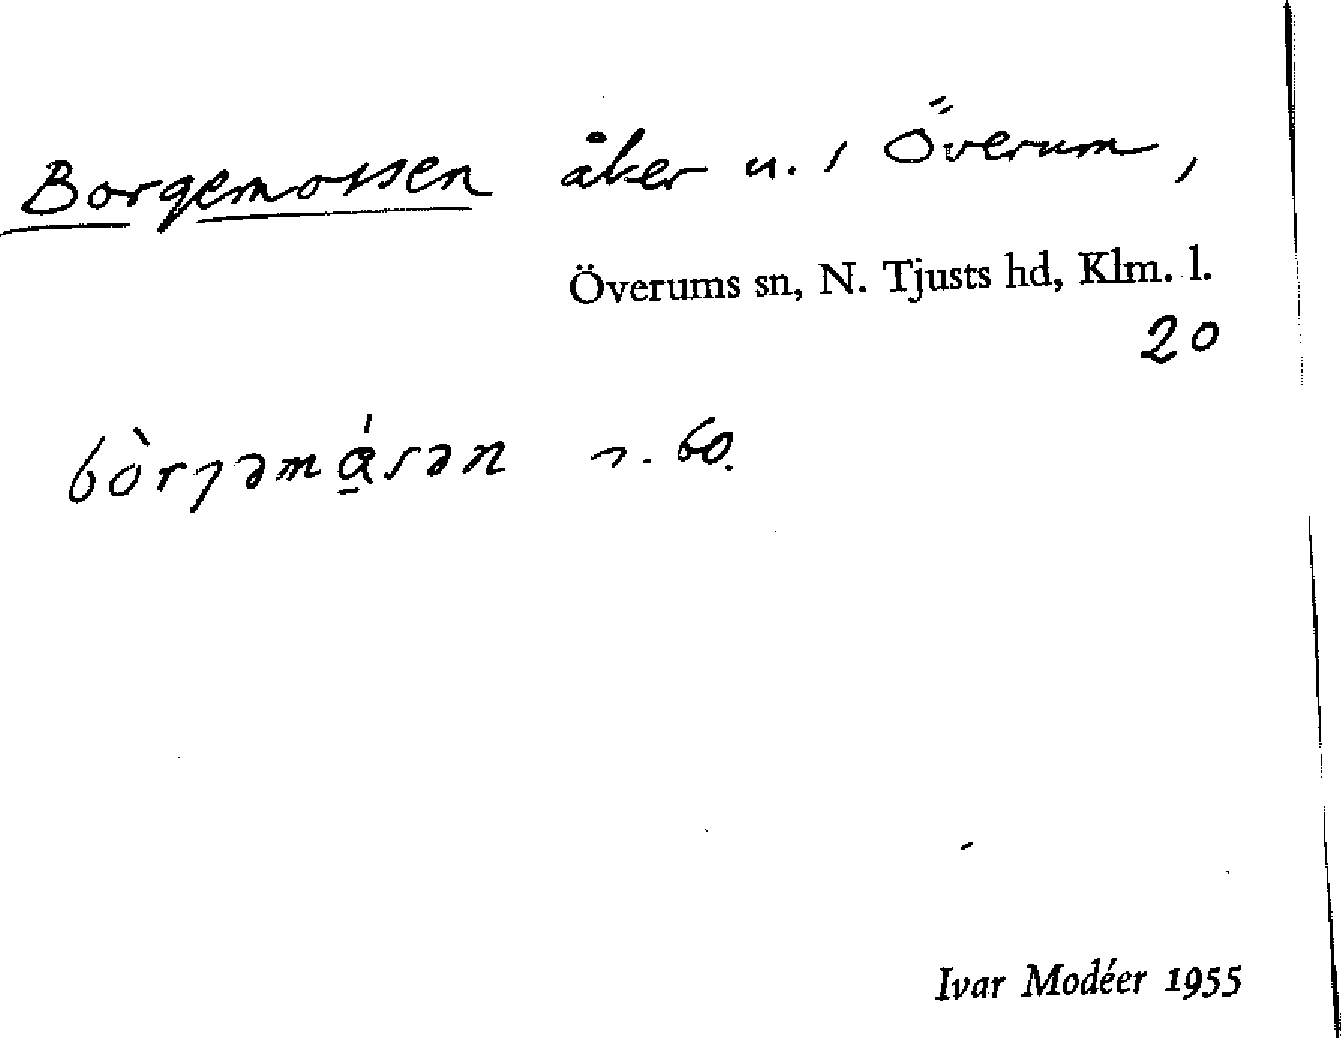 Borgemossen åker u. / Överum,
Överums sn, N. Tjusts hd, Klm. l.
20
bòrjəmɑ̱́sən
Ivar Modéer 1955